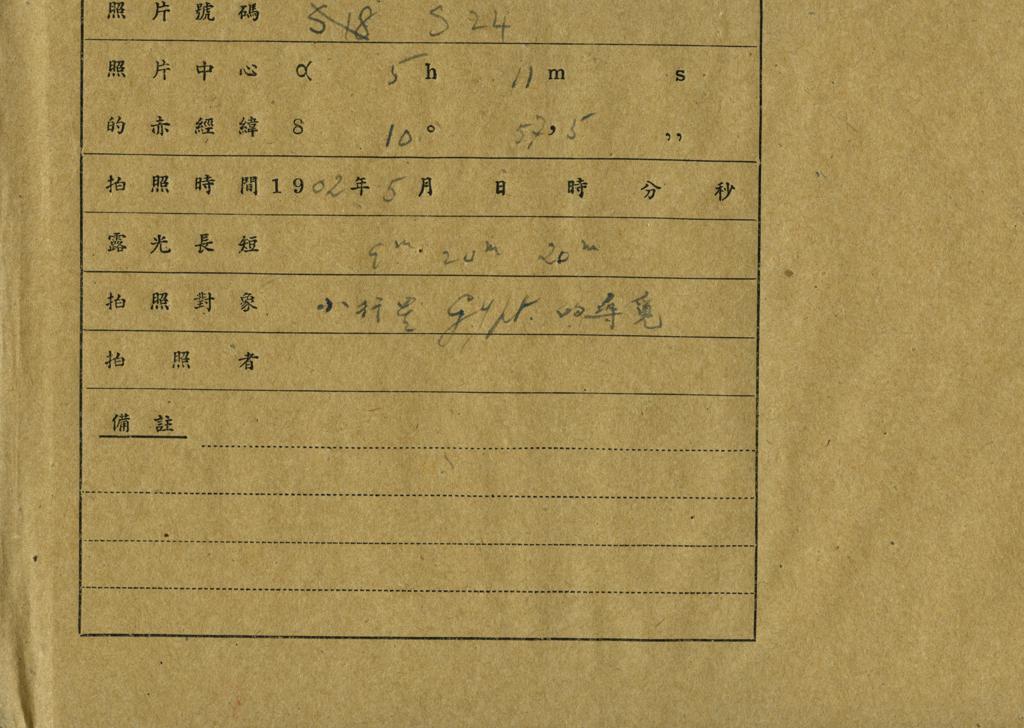 照片號碼 S18 S 24
照片中心 α 5h 11m s
的赤經緯 δ 10° 57,5 ,,
拍照時間1902年5月 日 時 分 秒
露光長短 9m. 20m 20m
拍照對象 小行星 的尋覓
拍照者
備註